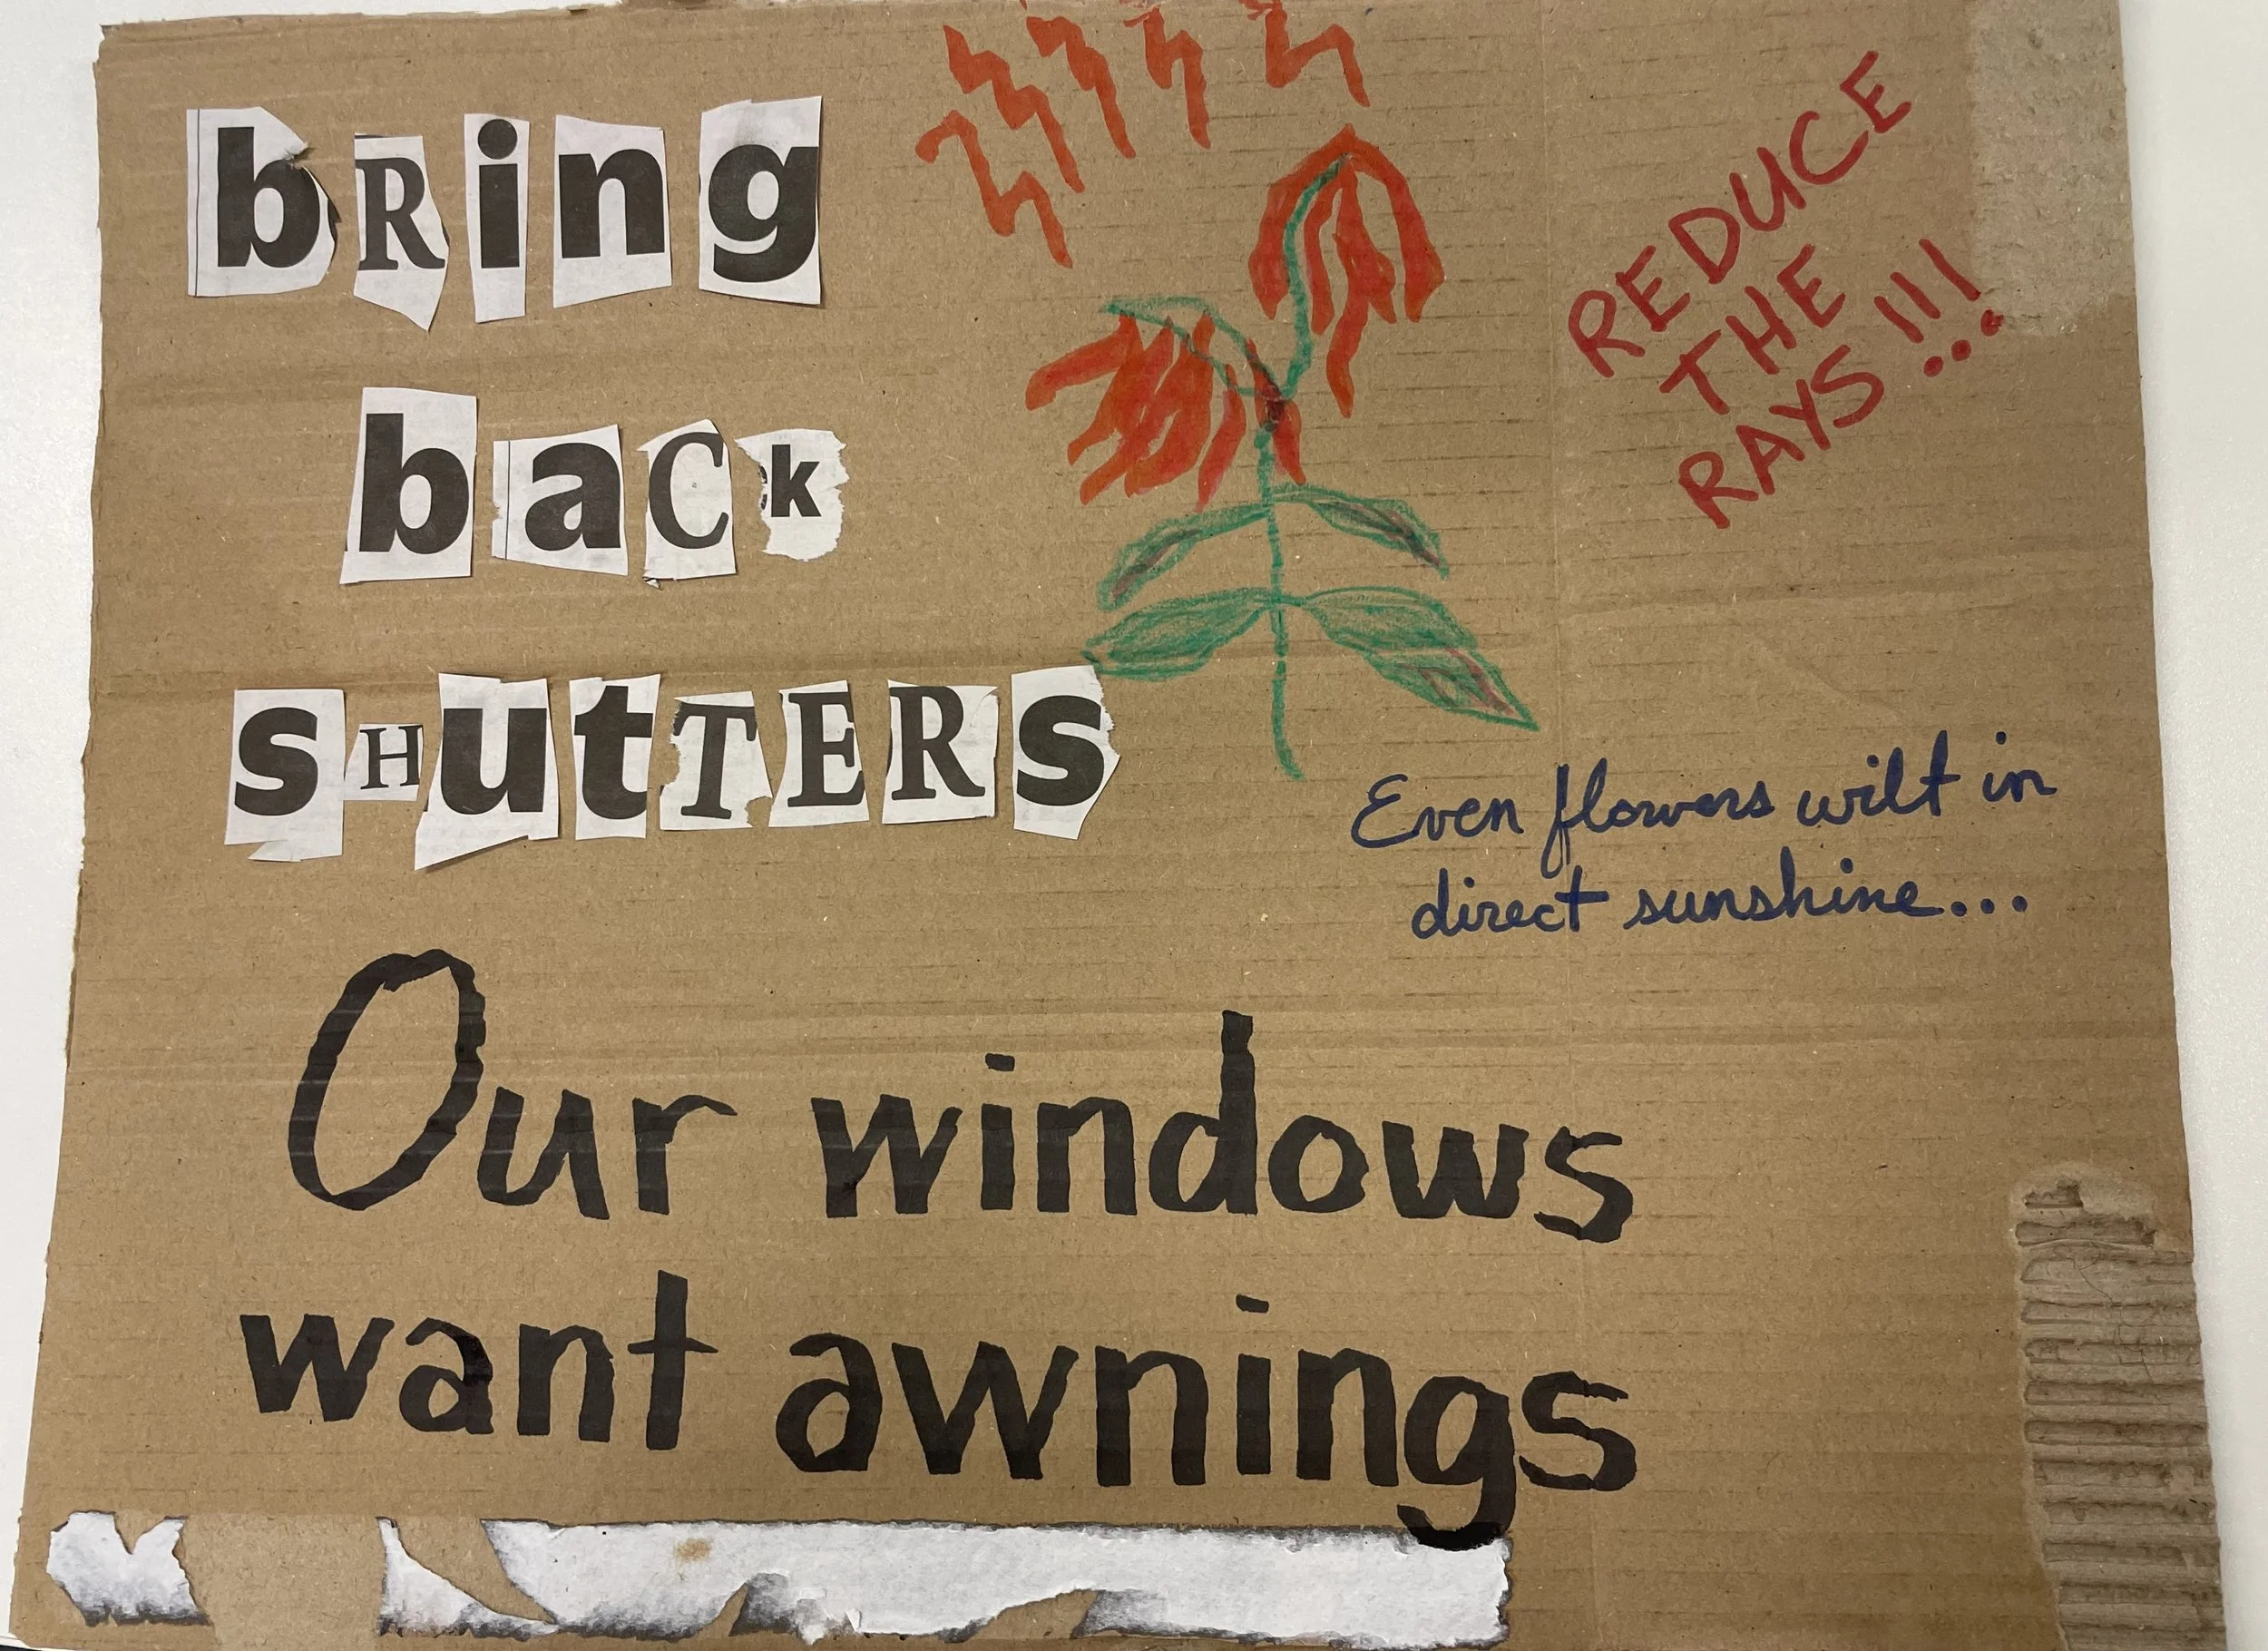 bRing
baCk
sHutTERs
REDUCE
THE
RAYS!!!
Even flowers wilt in
direct sunshine...
Our windows
want awnings